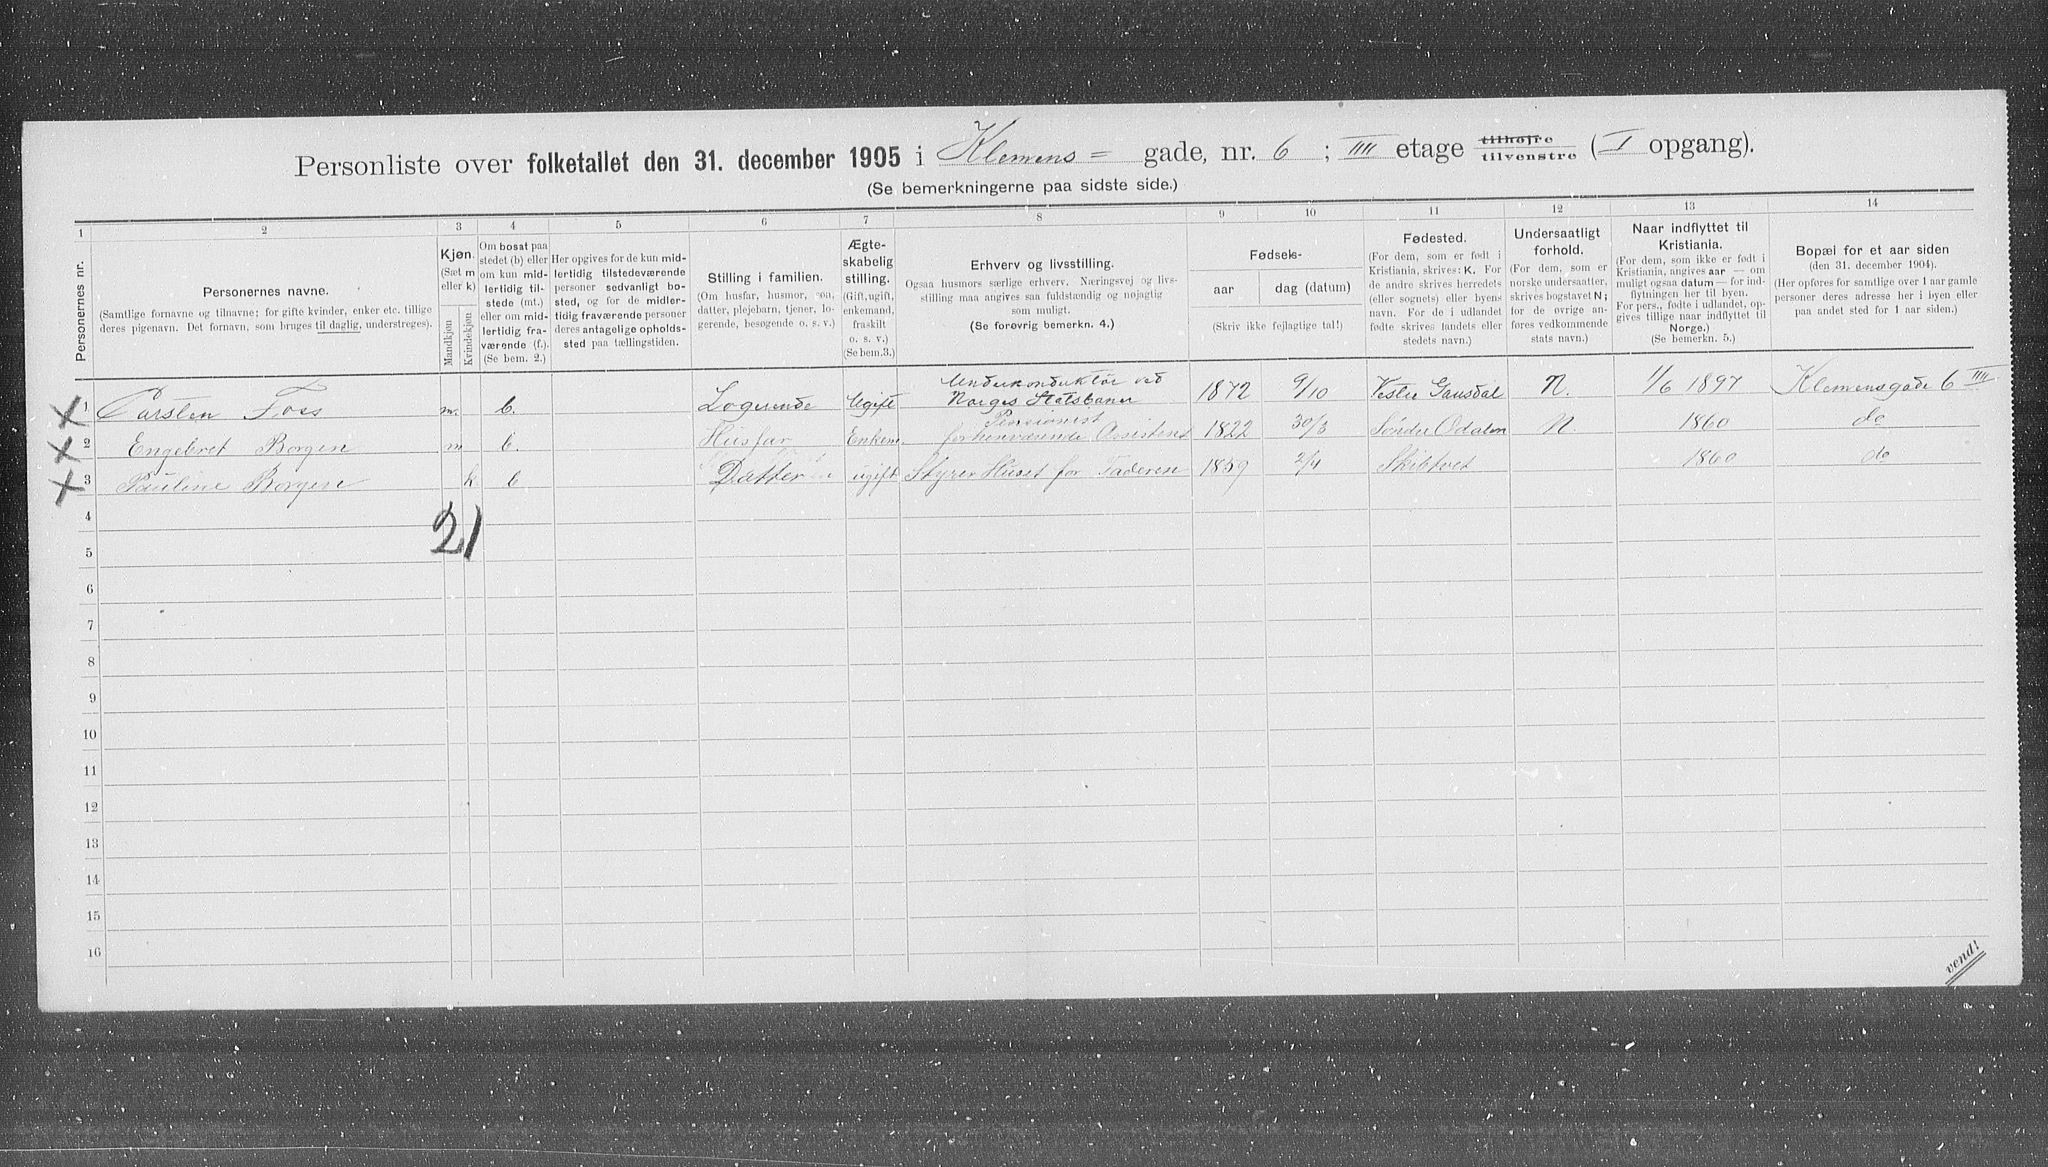 Personliste over folketallet den 31. december 1905 i Klemens= gade, nr. 6 ; IIII etage tilhøjre tilvenstre ( I opgang).
(Se bemerkningerne paa sidste side.)
1 2 3 4 5 6 7 8 9 10 11 12 13 14
Personernes nr.
Personernes navne.
(Samtlige fornavne og tilnavne; for gifte kvinder, enker etc. tillige
deres pigenavn. Det fornavn, som bruges til daglig, understreges).
Kjøn.
(Sæt m
eller k)
Mandkjøn
Kvindekjøn
Om bosat paa
stedet (b) eller
om kun mid-
lertidig til-
stede (mt.)
eller om mid-
lertidig fra-
værende (f.).
(Se bem. 2.)
Her opgives for de kun mid-
lertidig tilstedeværende
personer sedvanligt bo-
sted, og for de midler-
tidig fraværende personer
deres antagelige opholds-
sted paa tællingstiden.
Stilling i familien.
(Om husfar, husmor, søn,
datter, plejebarn, tjener, lo-
gerende, besøgende o. s. v.)
Ægte-
skabelig
stilling.
(Gift, ugift,
enkemand,
fraskilt
o. s. v.)
(Se bem. 3.)
Erhverv og livsstilling.
Ogsaa husmors særlige erhverv. Næringsvej og livs-
stilling maa angives saa fuldstændig og nøjagtig
som muligt.
(Se forøvrig bemerkn. 4.)
Fødsels-
aar dag (datum)
(Skriv ikke fejlagtige tal!)
Fødested.
(For dem, som er født i
Kristiania, skrives: K. For
de andre skrives herredets
(eller sognets) eller byens
navn. For de i udlandet
fødte skrives landets eller
stedets navn.)
Undersaatligt
forhold.
(For dem, som er
norske undersaatter,
skrives bogstavet N;
for de øvrige an-
føres vedkommende
stats navn.)
Naar indflyttet til
Kristiania.
(For dem, som ikke er født i
Kristiania, angives aar — om
muligt ogsaa datum — for ind-
flytningen her til byen.
For pers., fødte i udlandet, op-
gives tillige naar indflyttet til
Norge.)
(Se bemerkn. 5.)
Bopæl for et aar siden
(den 31. december 1904).
(Her opføres for samtlige over 1 aar gamle
personer deres adresse her i byen eller
paa andet sted for 1 aar siden.)
X 1 Carsten Foss m. b. Logerende Ugift Underkonduktør ved Norges Statsbaner 1872 9/10 Vestre Gausdal N. 1/6 1897 Klemensgade 6 IIII
X 2 Engebret Borgen m b. Husfar Enkem. Pensionist forhenværende Assistent 1822 30/3 Søndre Odalen N 1860 do
X 3 Pauline Borgen k b Datter ugift Styrer Huset for Faderen 1859 2/4 Skibtvet 1860 do
4
21
5
6
7
8
9
10
11
12
13
14
15
16
vend!